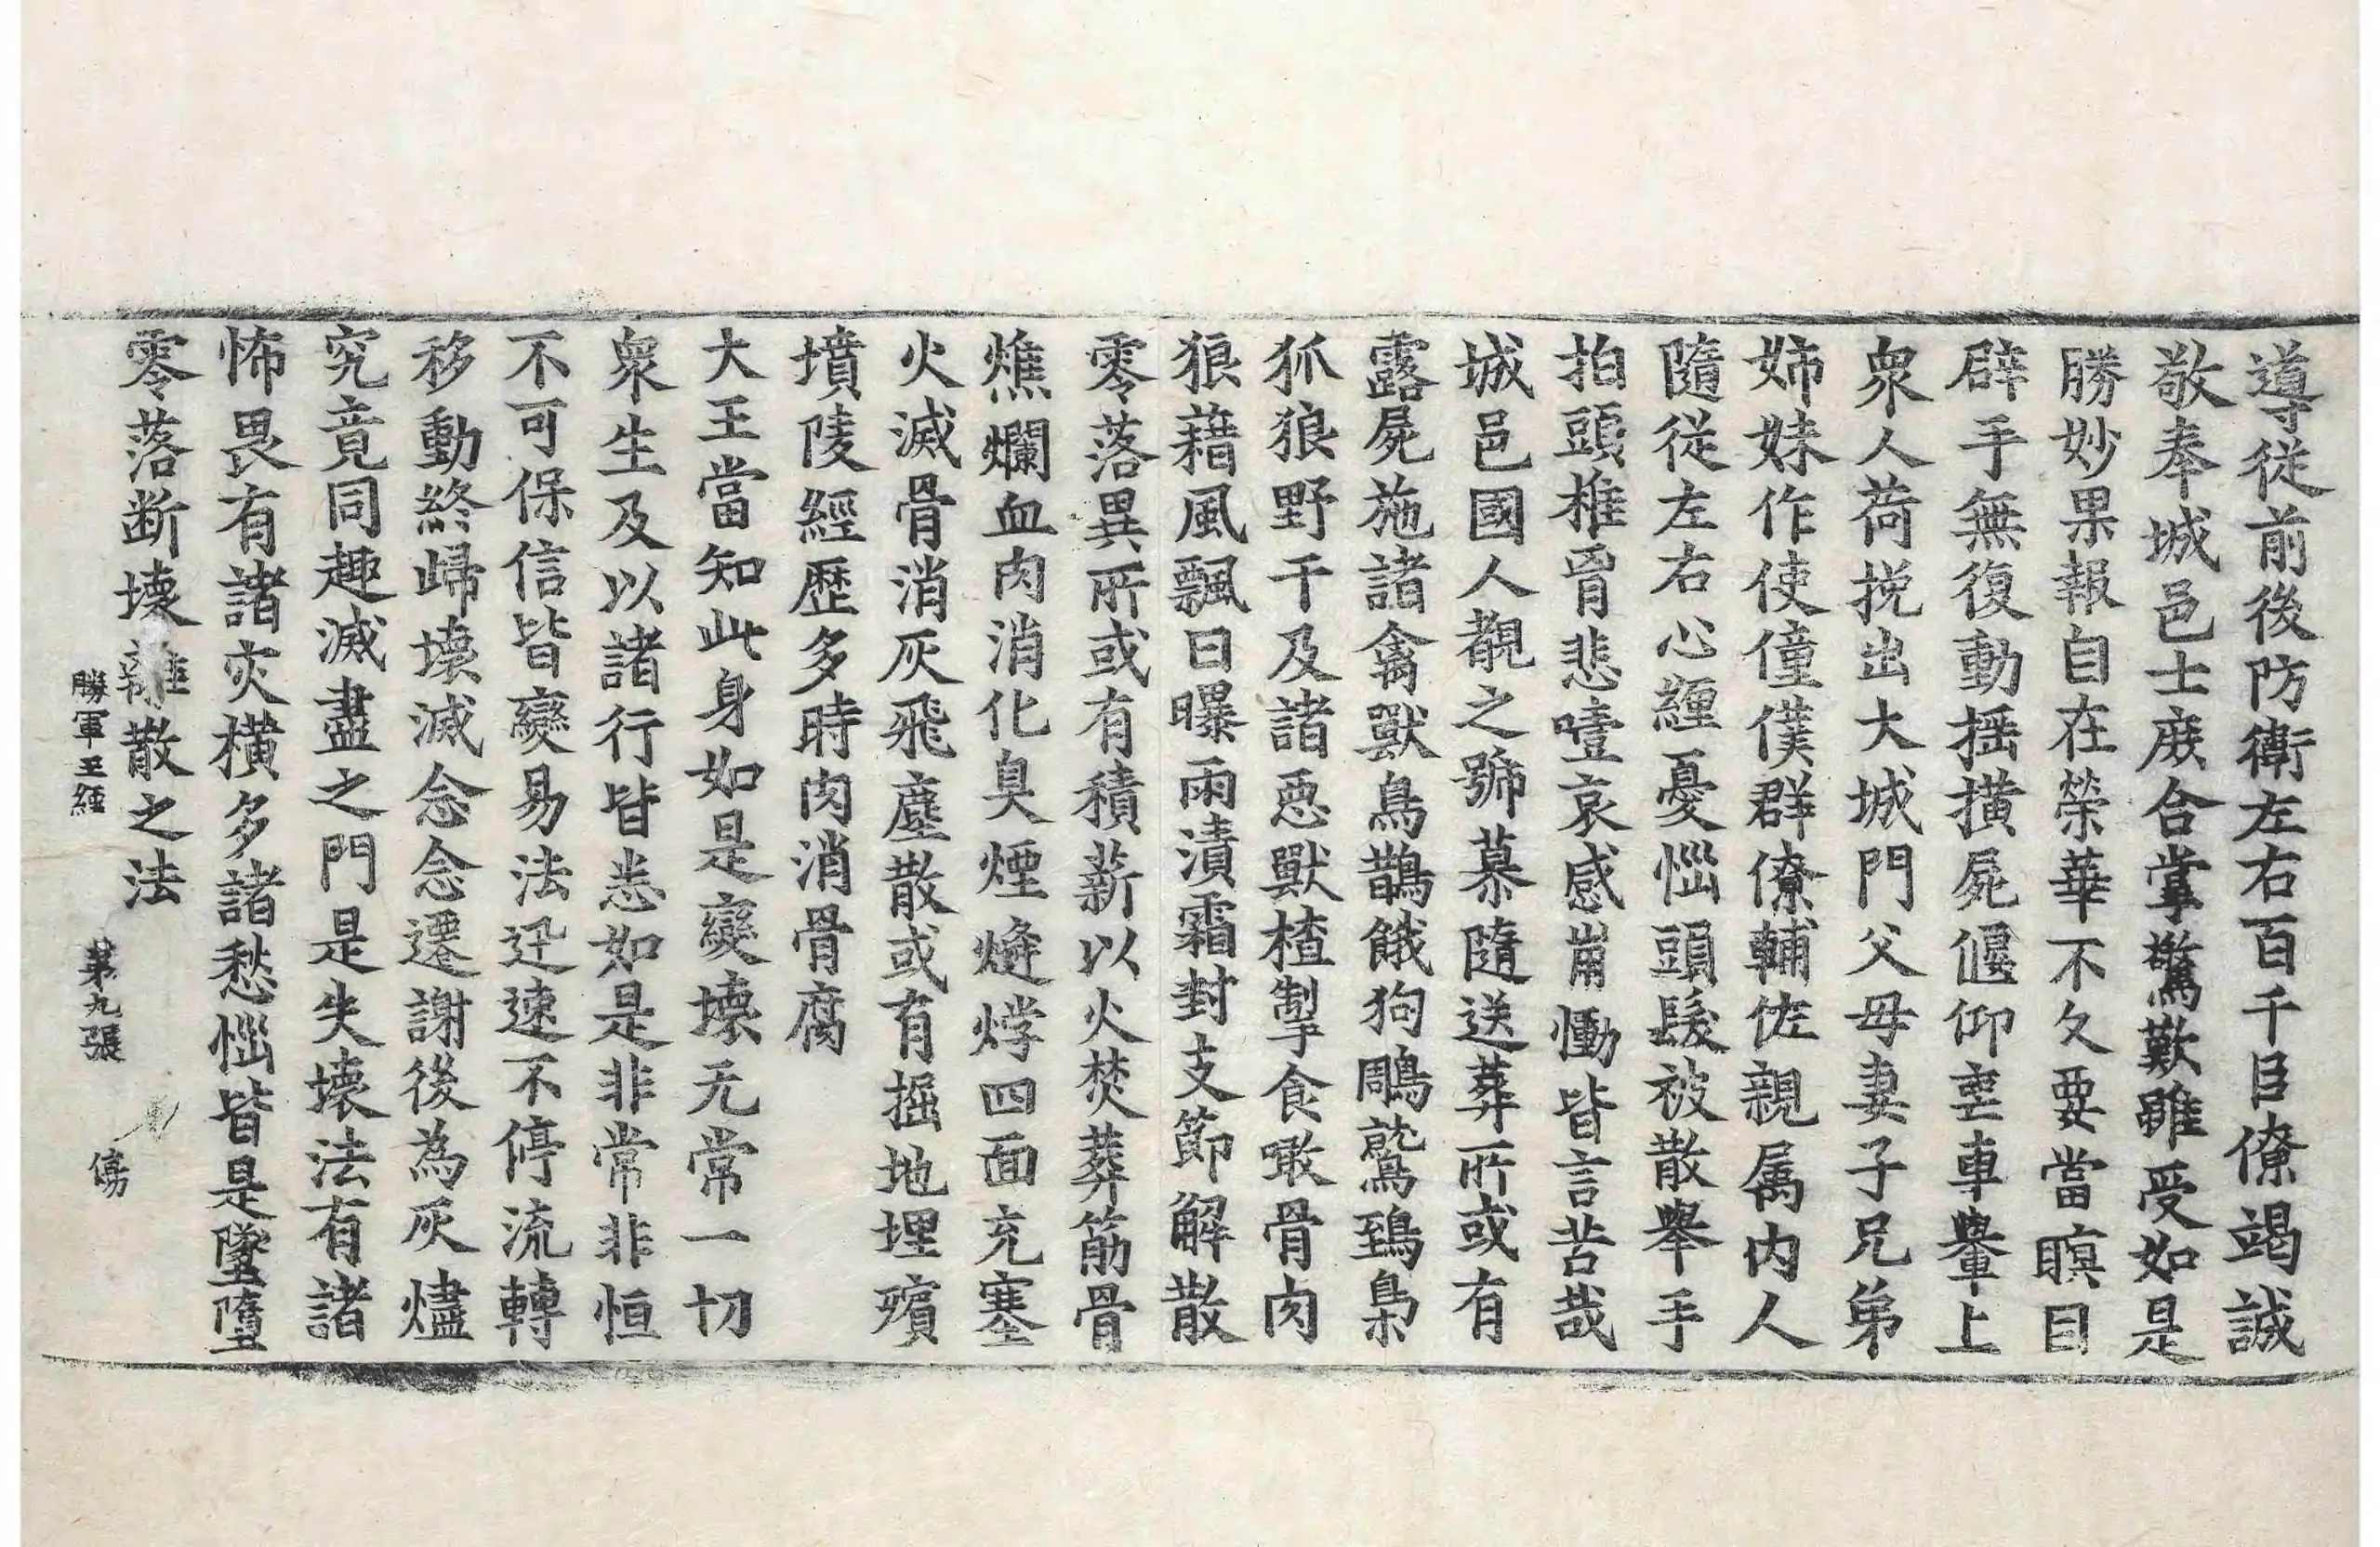 導從前後防衛左右百千臣僚竭誠
敬奉城邑士庶合掌驚歎雖受如是
勝妙果報自在榮華不久要當瞑目
辟手無復動揺横屍偃仰在車轝上
衆人荷挽出大城門父母妻子兄弟
姉妹作使僮僕群僚輔佐親属内人
隨從左右心纏憂惱頭髮被散舉手
拍頭椎胷悲噎哀感崩慟皆言苦哉
城邑國人覩之號慕隨送葬所或有
露屍施諸禽獸烏鵲餓狗鵰鷲鵄梟
狐狼野干及諸惡獸摣掣食噉骨肉
狼藉風飄日曝雨漬霜封支節解散
零落異所或有積薪以火焚葬筋骨
燋爛血肉消化臭煙熢㶿四面充塞
火滅骨消灰飛塵散或有掘地埋殯
墳陵經歴多時肉消骨腐
大王當知此身如是變壊无常一切
衆生及以諸行皆悉如是非常非恒
不可保信皆變易法迅速不停流轉
移動終歸壊滅念念遷謝後為灰燼
究竟同趣滅盡之門是失壊法有諸
怖畏有諸灾横多諸愁惱皆是墜墮
零落断壊離散之法
勝軍王經 第九張 傍